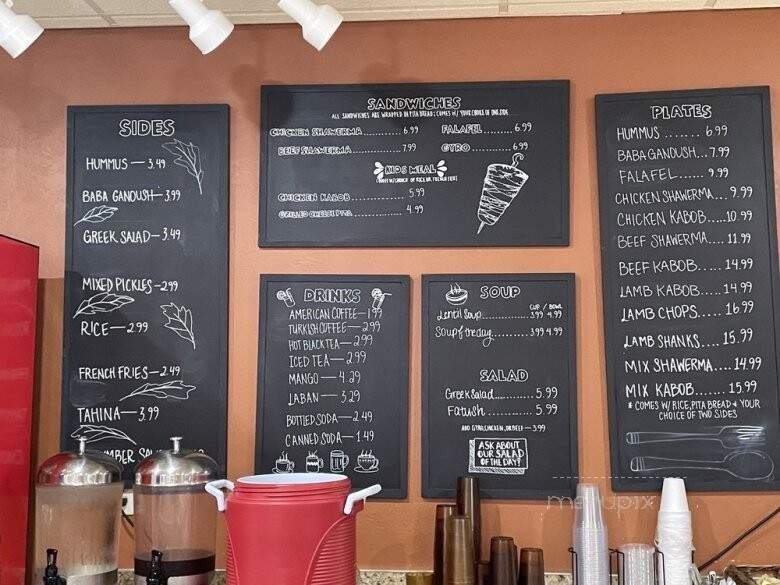 SIDES
HUMMUS — 3.49
BABA GANOUSH — 3.99
GREEK SALAD — 3.49
MIXED PICKLES - 2.99
RICE — 2.99
FRENCH FRIES — 2.49
TAHINA — 3.99
SANDWICHES
ALL SANDWICHES ARE WRAPPED IN PITA BREAD; COMES W/ YOUR CHOICE OF ONE SIDE
CHICKEN SHAWERMA............ 6.99
BEEF SHAWERMA............ 7.99
FALAFEL....... 6.99
GYRO......... 6.99
KIDS MEAL
CHICKEN KABOB............ 5.99
GRILLED CHEESE PITA............ 4.99
DRINKS
AMERICAN COFFEE — 1.99
TURKISH COFFEE — 2.99
HOT BLACK TEA — 2.99
ICED TEA — 2.99
MANGO — 4.29
LABAN — 3.29
BOTTLED SODA — 2.49
CANNED SODA — 1.49
SOUP
CUP / BOWL
Lentil Soup............ 3.99 4.99
Soup of the day............ 3.99 4.99
SALAD
Greek Salad............ 5.99
Fatush............ 5.99
ADD GYRO, CHICKEN, OR BEEF — 3.99
ASK ABOUT
OUR SALAD
OF THE DAY!
PLATES
HUMMUS ....... 6.99
BABA GANOUSH... 7.99
FALAFEL...... 9.99
CHICKEN SHAWERMA... 9.99
CHICKEN KABOB....10.99
BEEF SHAWERMA.... 11.99
BEEF KABOB..... 14.99
LAMB KABOB..... 14.99
LAMB CHOPS..... 16.99
LAMB SHANKS.... 15.99
MIX SHAWERMA.... 14.99
MIX KABOB....... 15.99
* COMES W/ RICE, PITA BREAD & YOUR
CHOICE OF TWO SIDES
menupix